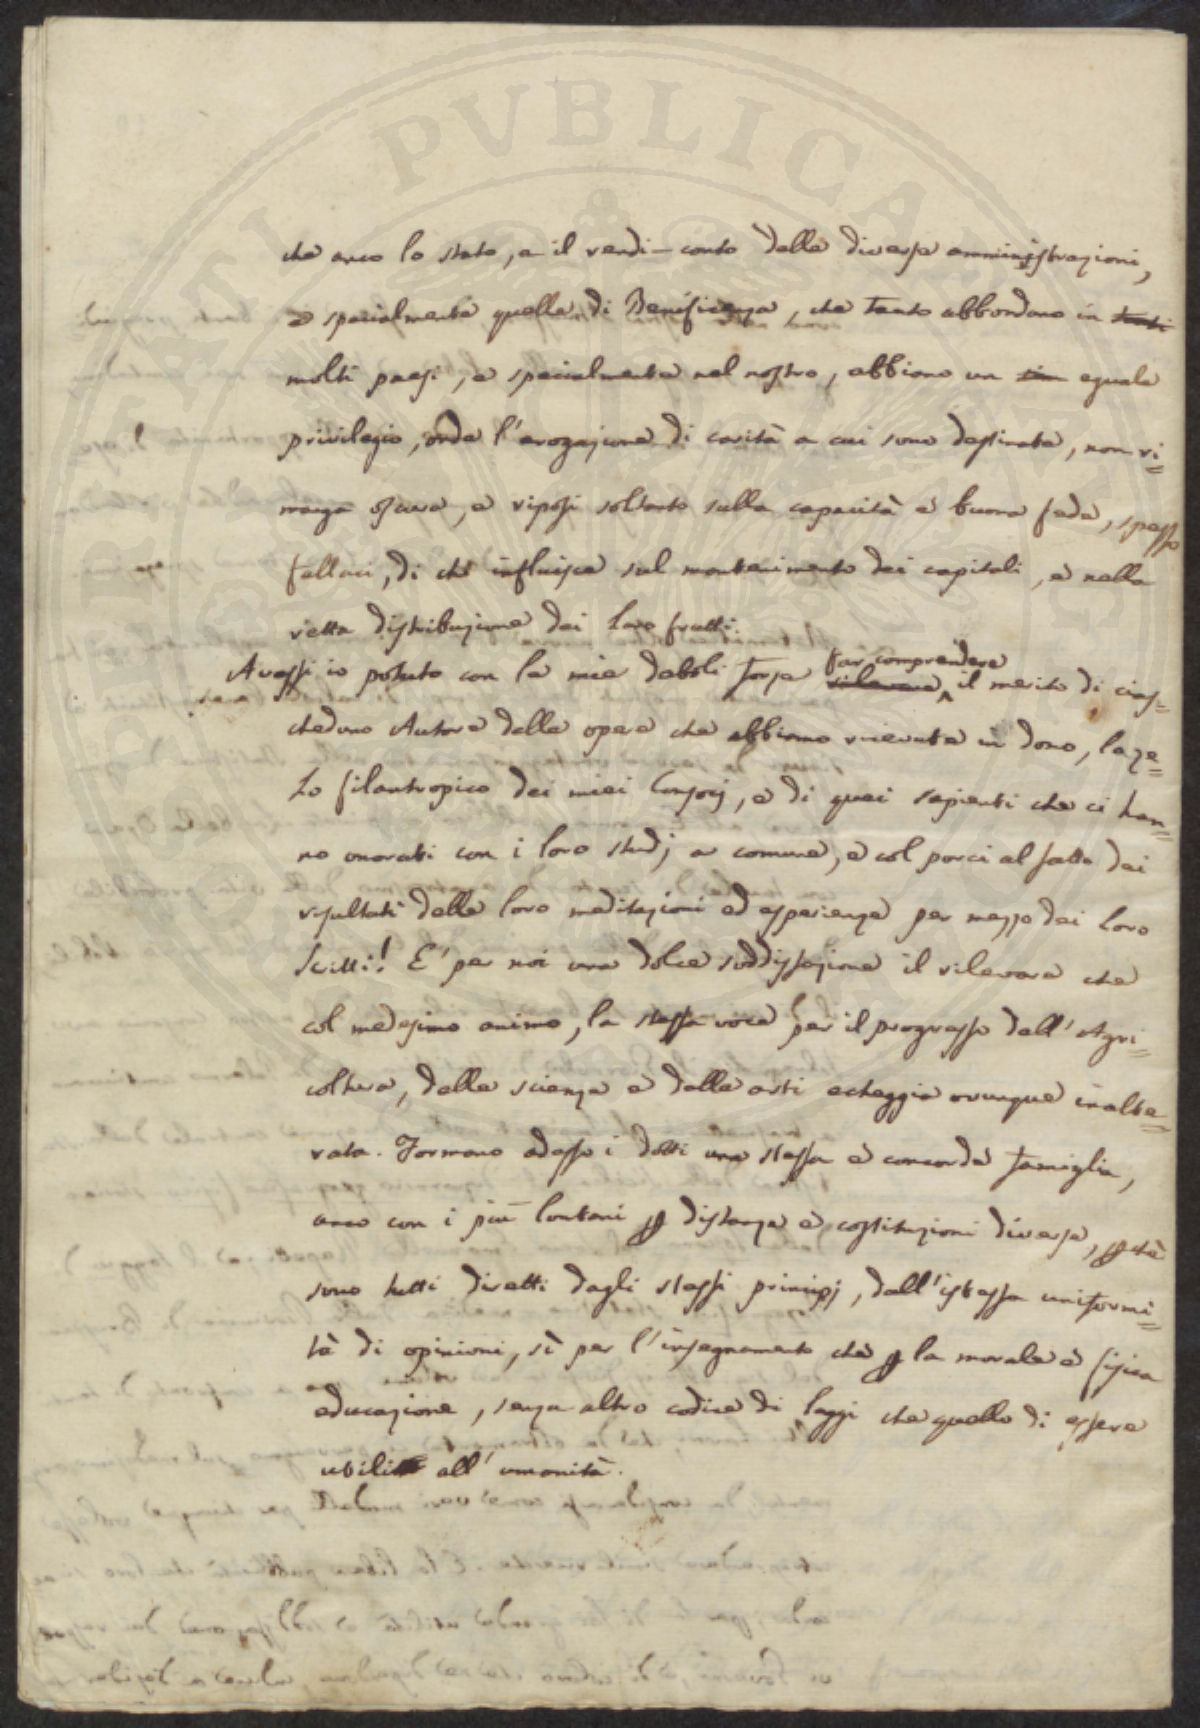 PIETATI PVBLICAE
che anco lo stato, e il rendi-conto delle diverse amministrazioni,
e specialmente quelle di Beneficenza, che tanto abbondano in tanti
molti paesi, e specialmente nel nostro, abbiano un eguale
privilegio, onde l'erogazione di carità a cui sono destinate, non ri=
manga oscura, e riposi soltanto sulla capacità e buona fede, spesso
fallaci, di chi influisce sul mantenimento dei capitali, e nella
retta distribuzione dei loro frutti.
Avessi io potuto con le mie deboli forze rilevare far comprendere il merito di cias=
cheduno Autore delle opere che abbiamo ricevute in dono, lo ze=
lo filantropico dei miei Consocj, e di quei sapienti che ci han=
no onorati con i loro studj a comune, e col porci al fatto dei
resultati delle loro meditazioni ed esperienze per mezzo dei loro
Scritti! E' per noi una dolce soddisfazione il rilevare che
col medesimo animo, la stessa voce per il progresso dell'Agri=
coltura, delle scienze e delle arti echeggia ovunque inalte=
rata. Formano adesso i dotti una stessa e concorde famiglia,
anco con i più lontani p distanza e costituzioni diverse, p chè
sono tutti diretti dagli stessi principj, dall'istessa uniformi=
tà di opinioni, sì per l'insegnamento che p la morale e fisica
educazione, senza altro codice di leggi che quello di essere
utili all'umanità.